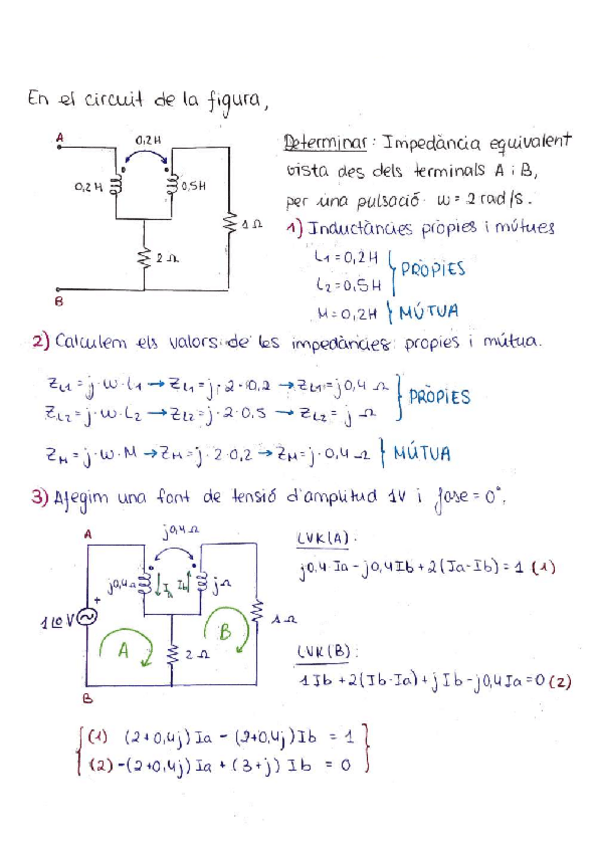 En el circuit de la figura,
A
0,2H
0,2H
0,5H
1Ω
2Ω
B
Determinar: Impedància equivalent
vista des dels terminals A i B,
per una pulsació w = 2 rad/s.
1) Inductàncies pròpies i mútues
L1 = 0,2H
L2 = 0,5H
PRÒPIES
M = 0,2H } MÚTUA
2) Calculem els valors de les impedàncies pròpies i mútua.
ZL1 = j·w·L1 → ZL1 = j·2·0,2 → ZL1 = j0,4 Ω
ZL2 = j·w·L2 → ZL2 = j·2·0,5 → ZL2 = j Ω
PRÒPIES
ZM = j·w·M → ZM = j·2·0,2 → ZM = j·0,4 Ω } MÚTUA
3) Afegim una font de tensió d'amplitud 1V i fase = 0°.
A
j0,4Ω
j0,4Ω
Ia
Ib
jΩ
+
1∠0 V
1Ω
A
B
2Ω
B
LVK(A):
j0.4·Ia - j0,4Ib + 2(Ia-Ib) = 1 (1)
LVK(B):
1Ib + 2(Ib-Ia) + jIb - j0,4Ia = 0 (2)
(1) (2+0,4j)Ia - (2+0,4j)Ib = 1
(2) -(2+0,4j)Ia + (3+j)Ib = 0